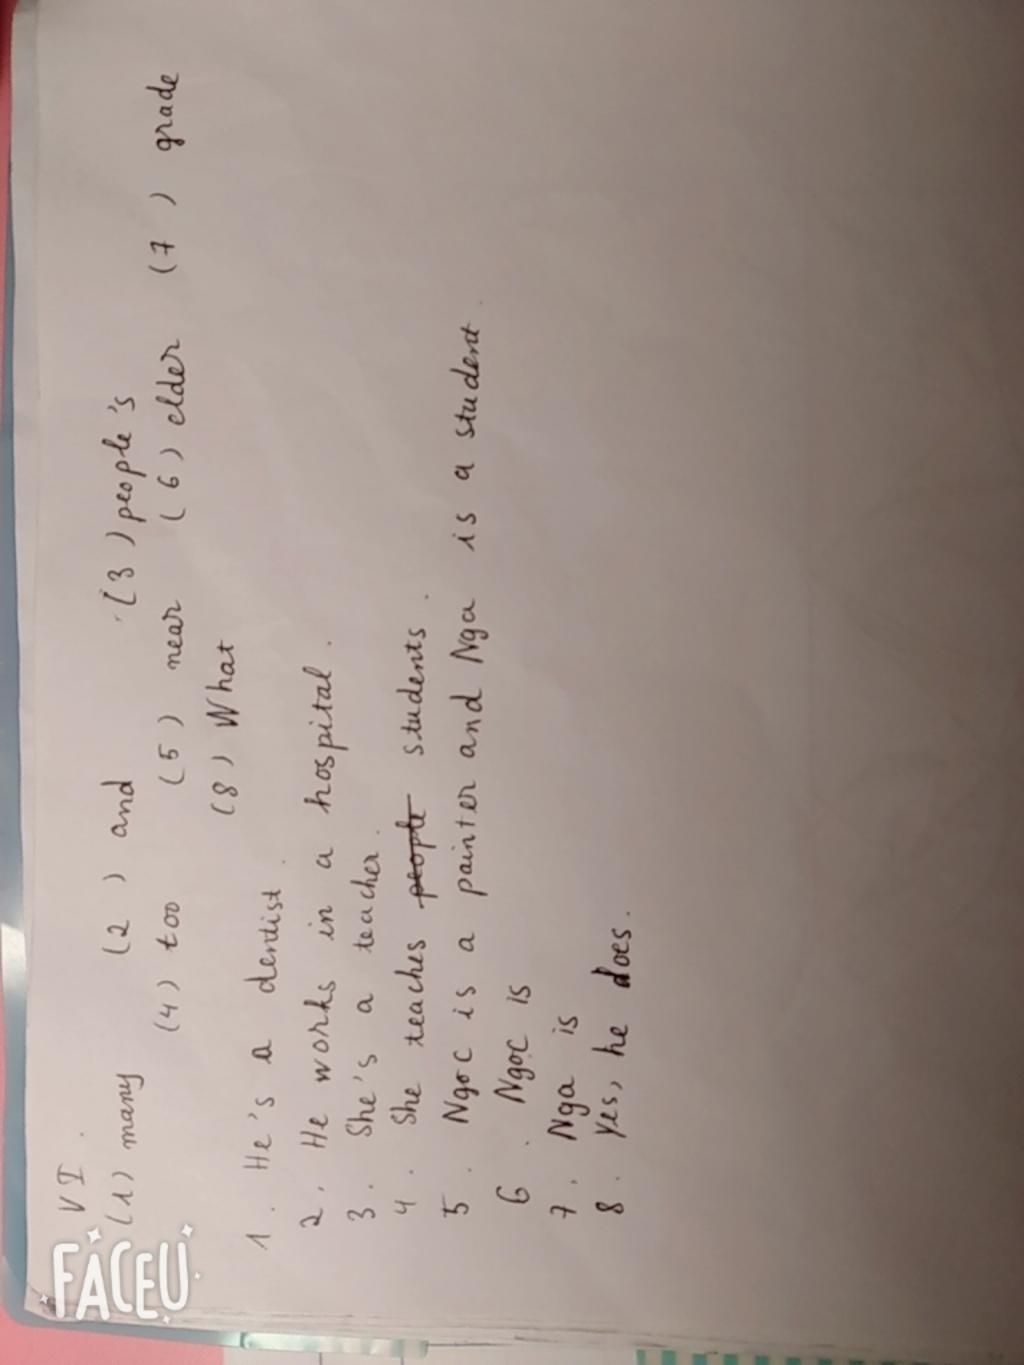 VI.
(1) many (2) and (3) people's
(4) too (5) near (6) elder (7) grade
(8) What
1. He's a dentist.
2. He works in a hospital.
3. She's a teacher.
4. She teaches people students.
5. Ngoc is a painter and Nga is a student.
6. Ngoc is
7. Nga is
8. Yes, he does.
FACEU